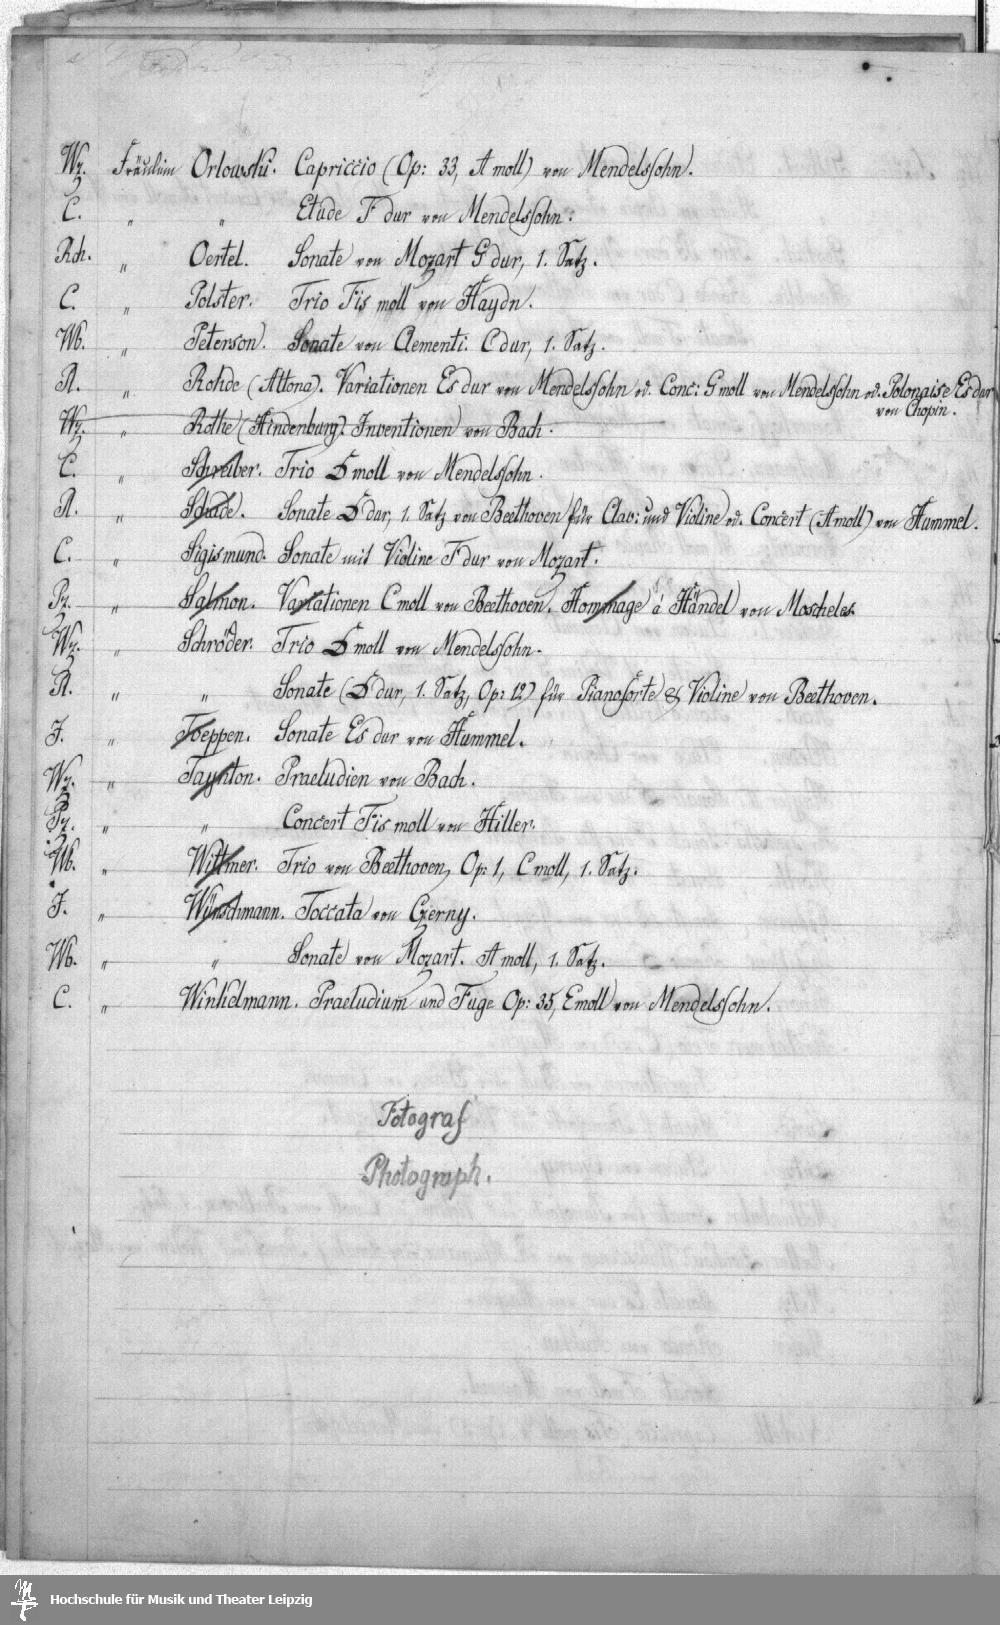 Wz. Fräulein Orlowski. Capriccio (Op: 33, A moll) von Mendelssohn.
C. " " Etude F dur von Mendelssohn.
Rch. " Oertel. Sonate von Mozart G dur, 1. Satz.
C. " Polster. Trio Fis moll von Haydn.
Wb. " Peterson. Sonate von Clementi. C dur, 1. Satz.
R. " Rohde (Altona). Variationen Es dur von Mendelssohn od. Conc: G moll von Mendelssohn od. Polonaise Es dur
von Chopin.
Wz. " Rothe (Hindenburg). Inventionen von Bach.
C. " Schreiber. Trio D moll von Mendelssohn.
R. " Schade. Sonate D dur, 1. Satz von Beethoven für Clav: und Violine od. Concert (A moll) von Hummel.
C. " Sigismund. Sonate mit Violine F dur von Mozart.
Pz. " Salmon. Variationen C moll von Beethoven. Hommage á Händel von Moscheles.
Wz. " Schröder. Trio D moll von Mendelssohn.
R. " " Sonate (D dur, 1. Satz, Op: 12) für Pianoforte & Violine von Beethoven.
J. " Toeppen. Sonate Es dur von Hummel.
Wz. " Taynton. Praeludien von Bach.
Pz. " " Concert Fis moll von Hiller.
Wb. " Wittmer. Trio von Beethoven, Op: 1, C moll, 1. Satz.
J. " Wünschmann. Toccata von Czerny.
Wb. " " Sonate von Mozart. A moll, 1. Satz.
C. " Winkelmann. Praeludium und Fuge Op: 35, E moll von Mendelssohn.
Fotograf
Photograph.
Hochschule für Musik und Theater Leipzig